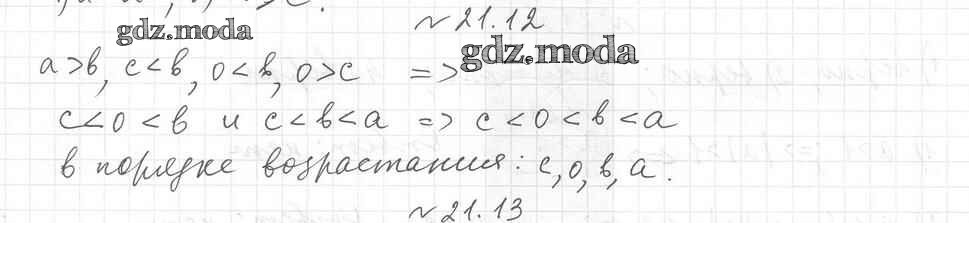 № 21.12
gdz.moda
gdz.moda
a>b, c<b, 0<b, 0>c =>
c<0<b и c<b<a => c<0<b<a
в порядке возрастания: c, 0, b, a.
№ 21.13